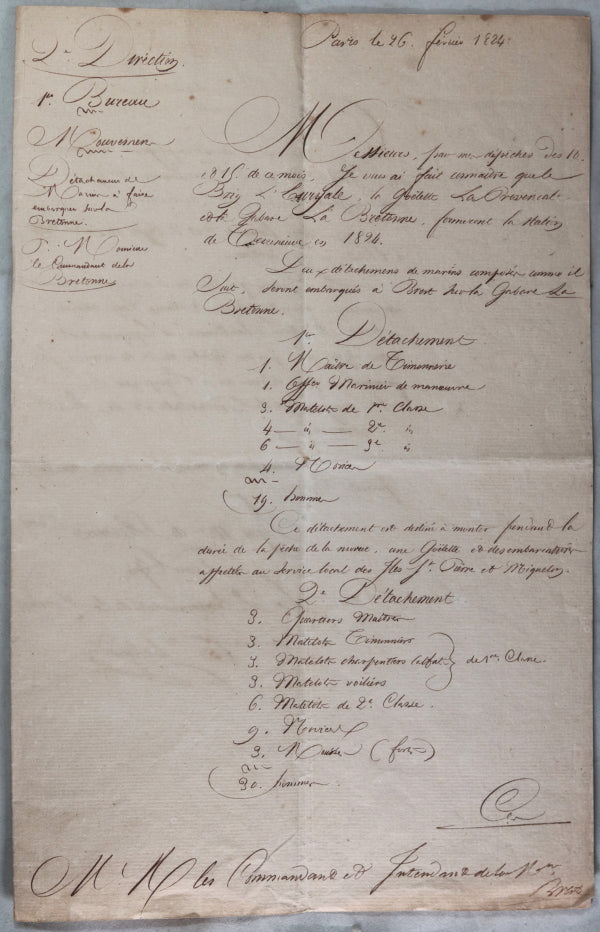 Paris le 26. février 1824.
2e. Direction.
1er. Bureau
Mouvemens
Détachemens de
Marins à faire
embarquer sur la
Bretonne.
le Commandant de la
Bretonne
Messieurs, par mes dépêches des 10
et 15. de ce mois, Je vous ai fait connaître que le
Brig L'Euryale, la Goëlette La Provençale
et la Gabare La Bretonne, formeront la station
de Terreneuve en 1824.
Deux détachemens de marins composés comme il
suit, seront embarqués à Brest sur la Gabare La
Bretonne.
1er. Détachement
1. Maître de Timonnerie
1. Offer. Marinier de manœuvre
3. Matelots de 1ere. Classe
4 — id — 2e. id
6 — id — 3e. id
4. Novices
19. hommes
Ce détachement est destiné à monter pendant la
durée de la pêche de la morue, une Goëlette et des embarcations
affectées au service local des Iles St. Pierre et Miquelon.
2e. Détachement
3. Quartiers Maîtres
3. Matelots Timonniers
3. Matelots charpentiers calfats
de 1ere. Classe.
3. Matelots voiliers
6. Matelots de 2e. Classe.
9. Novices
3. Mousses (forts)
30. hommes
Ces
M. M. les Commandant et Intendant de la Mne.
Brest